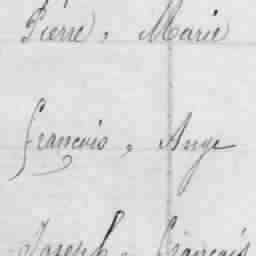 Pierre, Marie
François, Ange
Joseph, François